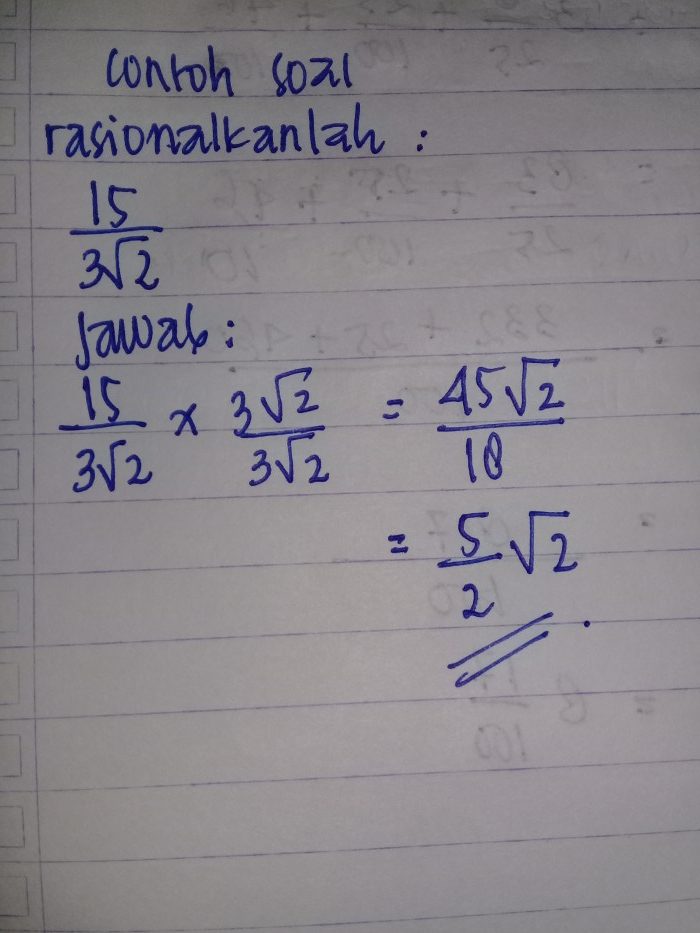 contoh soal
rasionalkanlah :
15
3√2
Jawab :
15/3√2 × 3√2/3√2 = 45√2/18
= 5/2 √2